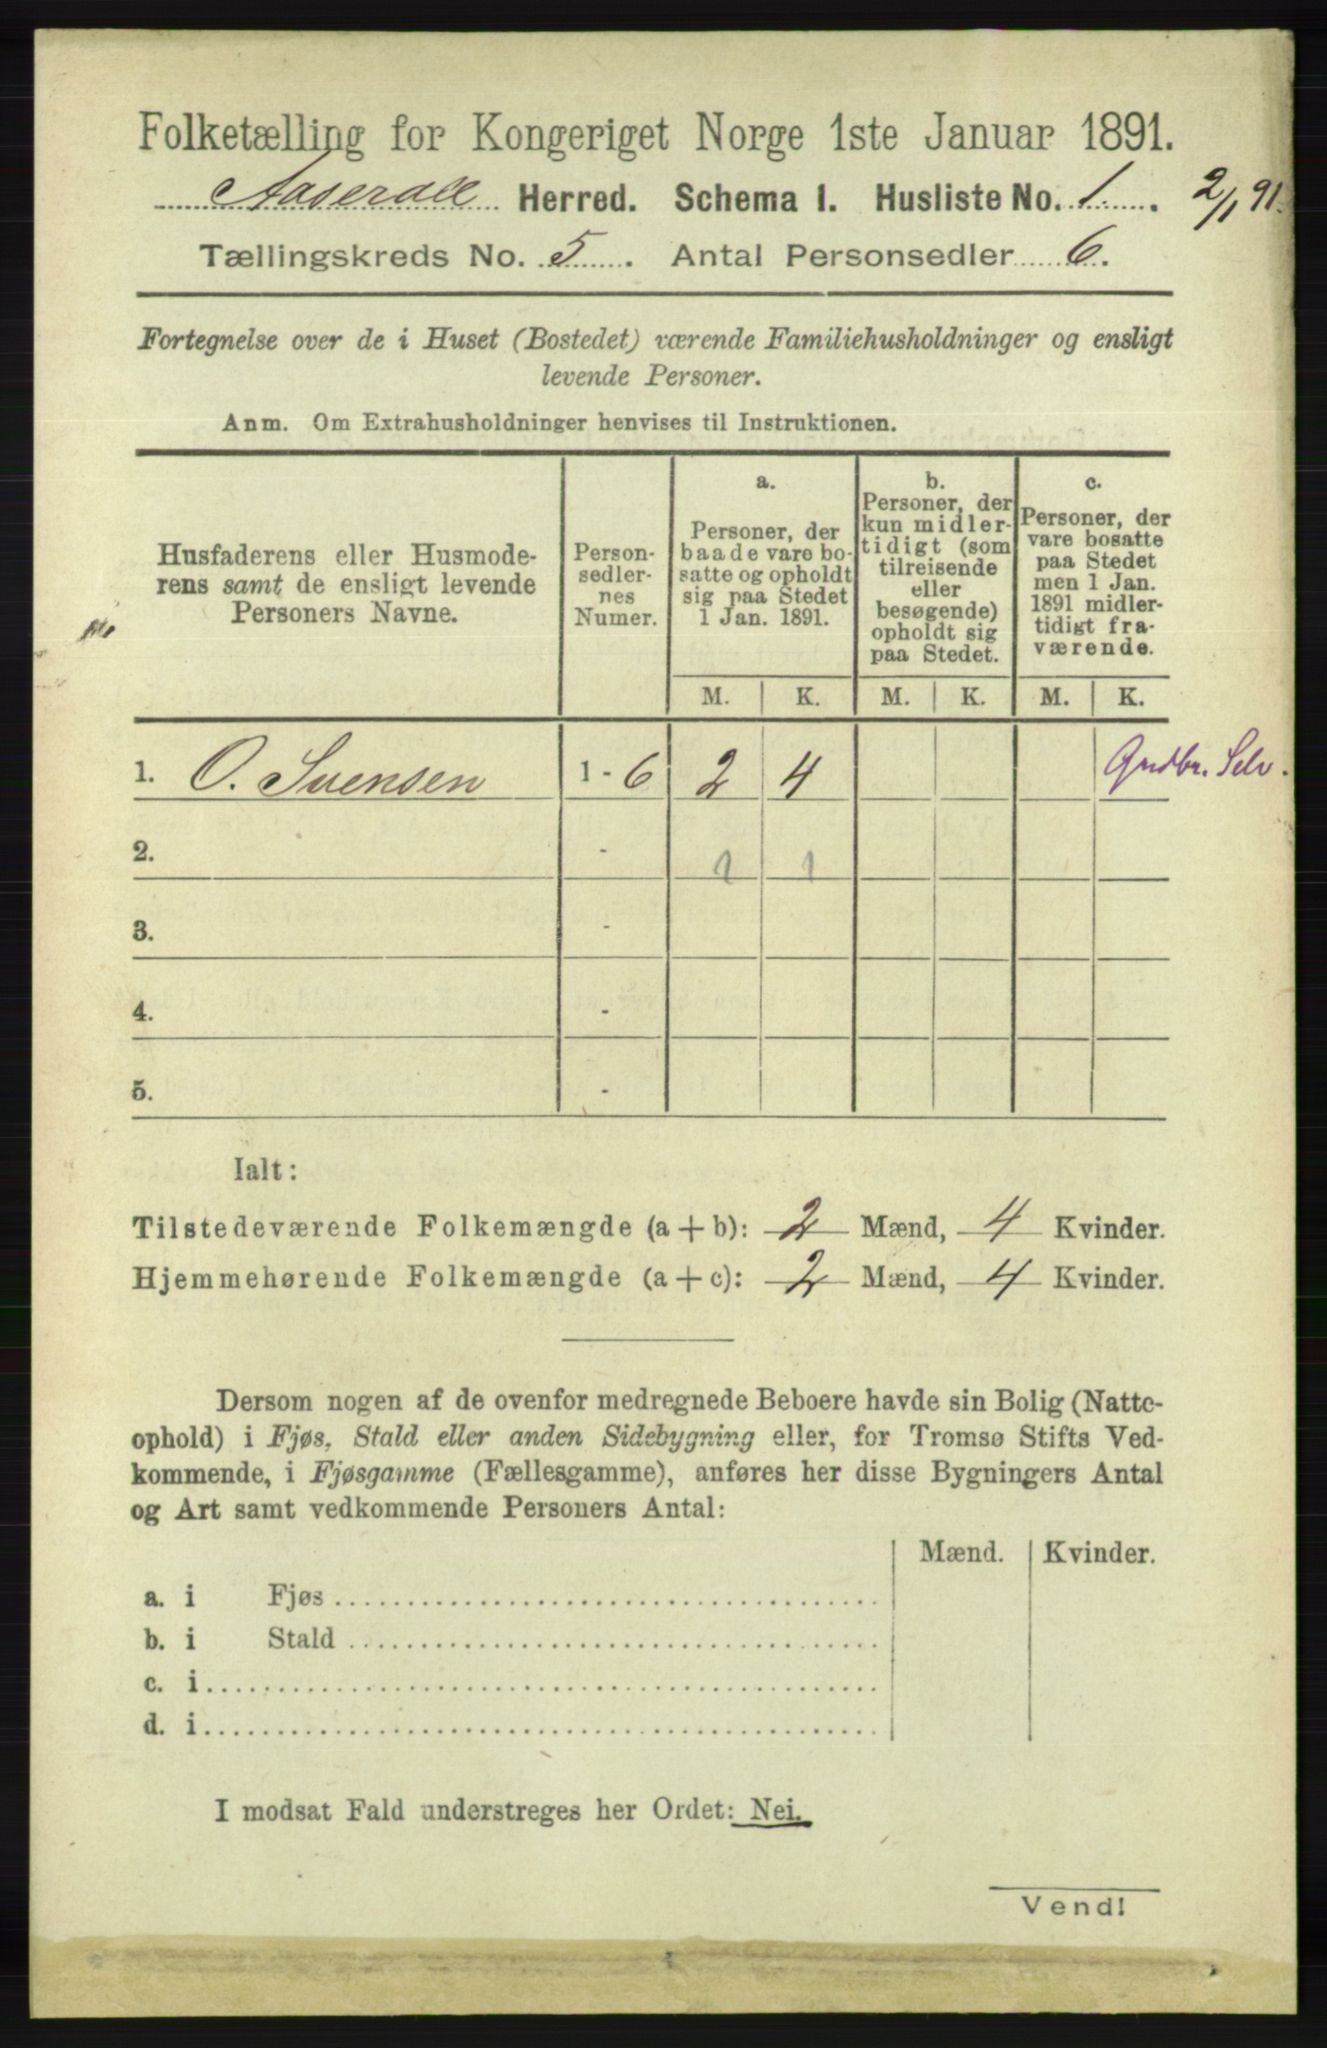 Folketælling for Kongeriget Norge 1ste Januar 1891.
Aaserall Herred. Schema 1. Husliste No. 1. 2/1 91.
Tællingskreds No. 5. Antal Personsedler 6.
Fortegnelse over de i Huset (Bostedet) værende Familiehusholdninger og ensligt
levende Personer.
Anm. Om Extrahusholdninger henvises til Instruktionen.
Husfaderens eller Husmode-
rens samt de ensligt levende
Personers Navne.
Person-
sedler-
nes
Numer.
a.
Personer, der
baade vare bo-
satte og opholdt
sig paa Stedet
1 Jan. 1891.
b.
Personer, der
kun midler-
tidigt (som
tilreisende
eller
besøgende)
opholdt sig
paa Stedet.
c.
Personer, der
vare bosatte
paa Stedet
men 1 Jan.
1891 midler-
tidigt fra-
værende.
M. K. M. K. M. K.
1. O. Svensen 1 - 6 2 4 Gndbr. Selv.
2. - 1 1
3. -
4. -
5. -
Ialt:
Tilstedeværende Folkemængde (a + b): 2 Mænd, 4 Kvinder.
Hjemmehørende Folkemængde (a + c): 2 Mænd, 4 Kvinder.
Dersom nogen af de ovenfor medregnede Beboere havde sin Bolig (Natte-
ophold) i Fjøs, Stald eller anden Sidebygning eller, for Tromsø Stifts Ved-
kommende, i Fjøsgamme (Fællesgamme), anføres her disse Bygningers Antal
og Art samt vedkommende Personers Antal:
Mænd. Kvinder.
a. i Fjøs
b. i Stald
c. i
d. i
I modsat Fald understreges her Ordet: Nei.
Vend!